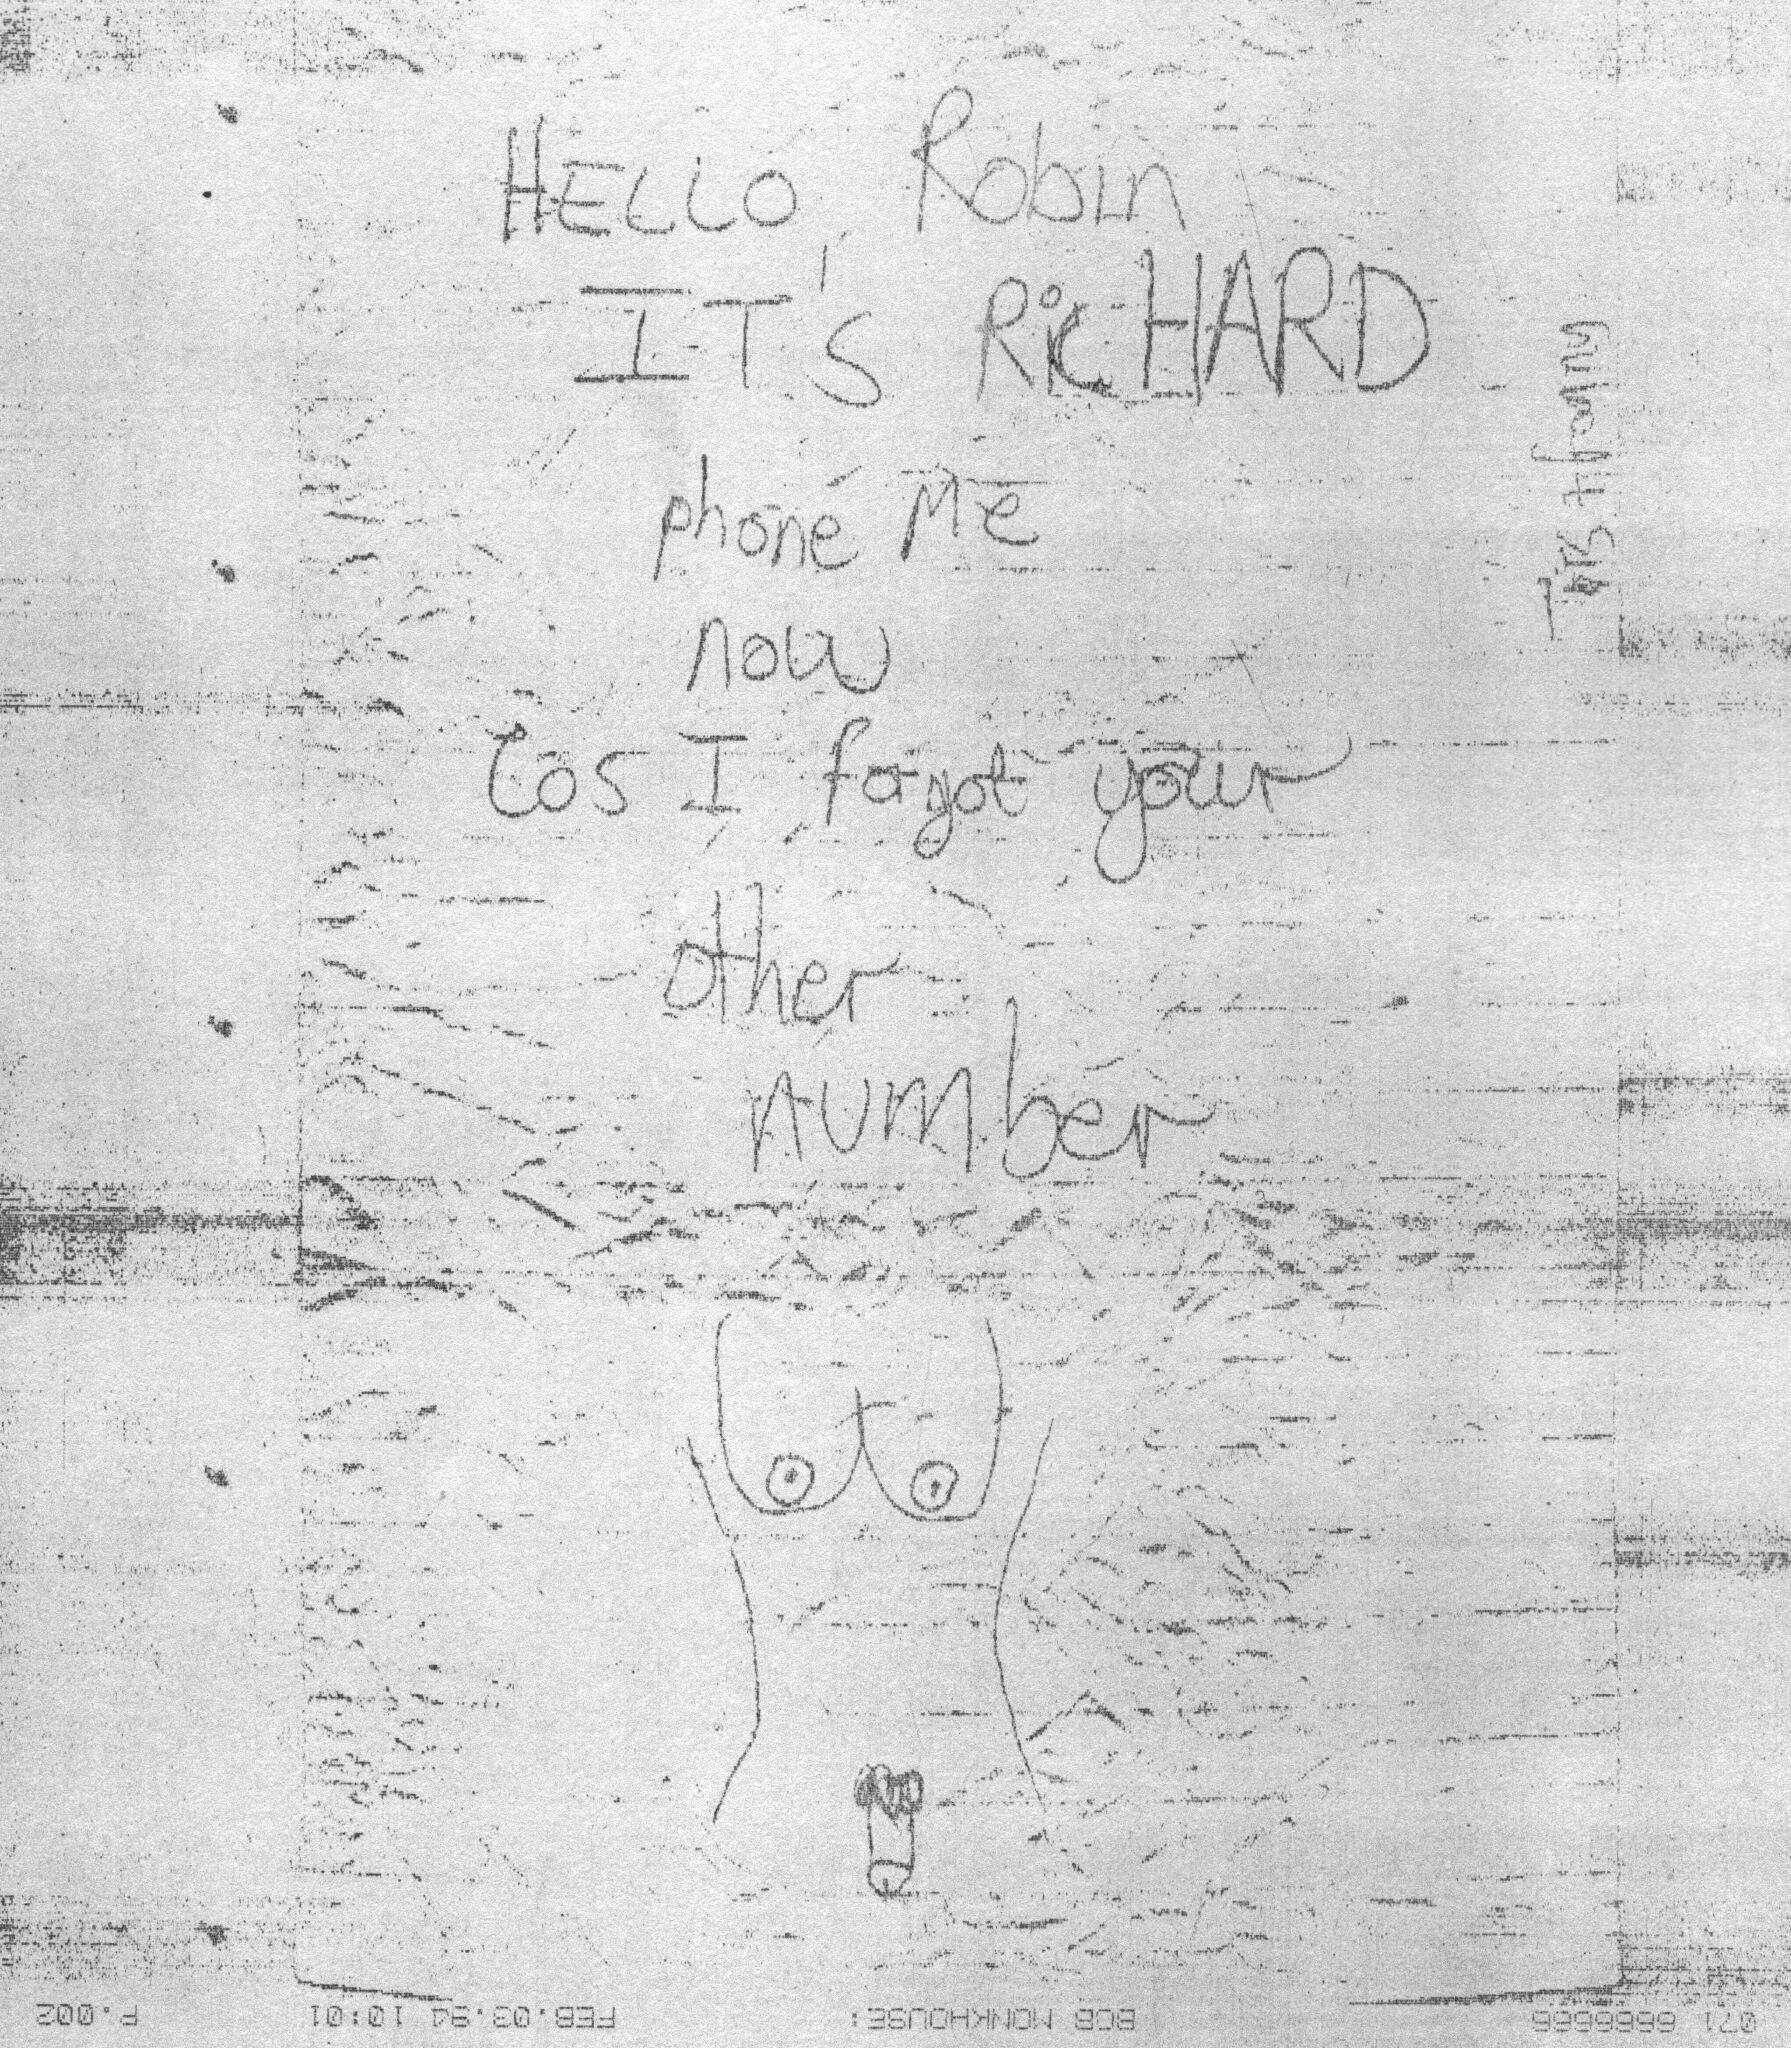 HELLO Robin
IT'S RicHARD
phone Me
now
Cos I forgot your
other
number
071 6666666 BOB MONKHOUSE: FEB.03.94 10:01 P.002